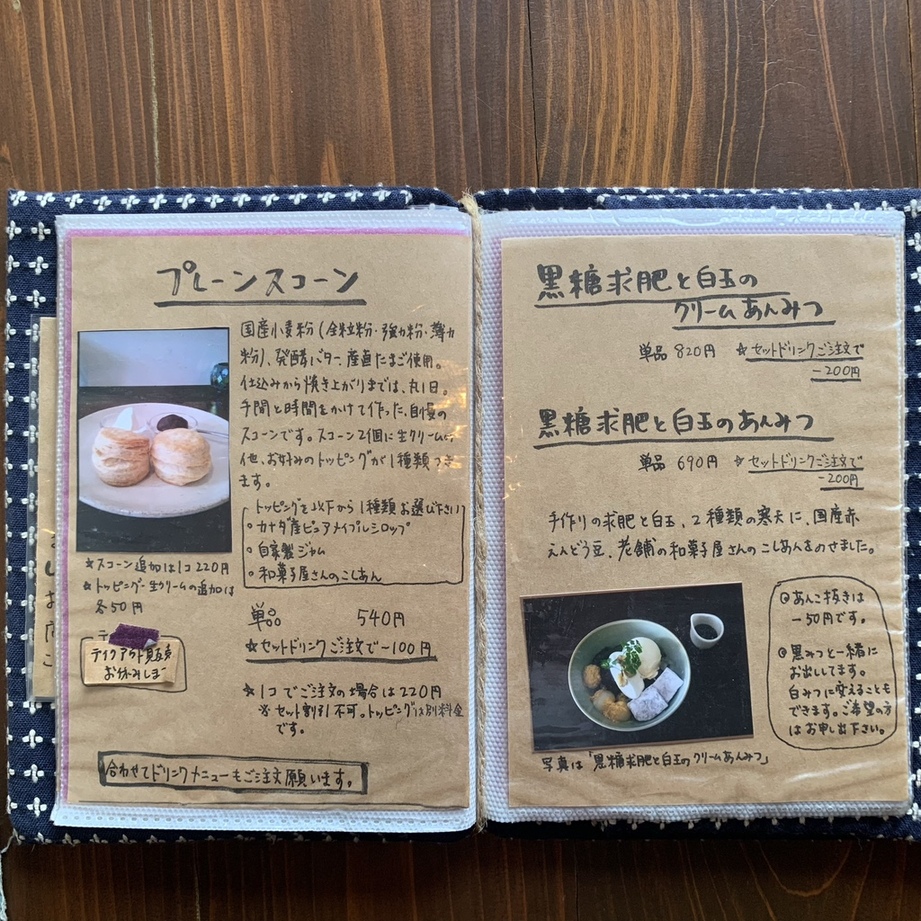 プレーンスコーン
国産小麦粉(全粒粉・強力粉・薄力
粉)、発酵バター、産直たまご使用。
仕込みから焼き上がりまでは、丸1日。
手間と時間をかけて作った、自慢の
スコーンです。スコーン2個に生クリーム
他、お好みのトッピングが1種類つき
ます。
トッピングを以下から1種類お選び下さい
・カナダ産ピュアメイプルシロップ
・自家製ジャム
・和菓子屋さんのこしあん
★スコーン追加は1コ220円
★トッピング・生クリームの追加は
各50円
単品 540円
★セットドリンクご注文で-100円
テイクアウト販売
お休みしま
★1コでご注文の場合は220円
※セット割引不可。トッピングは別料金
です。
合わせてドリンクメニューもご注文願います。
黒糖求肥と白玉の
クリームあんみつ
単品 820円 ★セットドリンクご注文で
-200円
黒糖求肥と白玉のあんみつ
単品 690円 ★セットドリンクご注文で
-200円
手作りの求肥と白玉、2種類の寒天に、国産赤
えんどう豆、老舗の和菓子屋さんのこしあんをのせました。
◎あんこ抜きは
-50円です。
◎黒みつと一緒に
お出ししてます。
白みつに変えることも
できます。ご希望の方
はお申し出下さい。
写真は「黒糖求肥と白玉のクリームあんみつ」